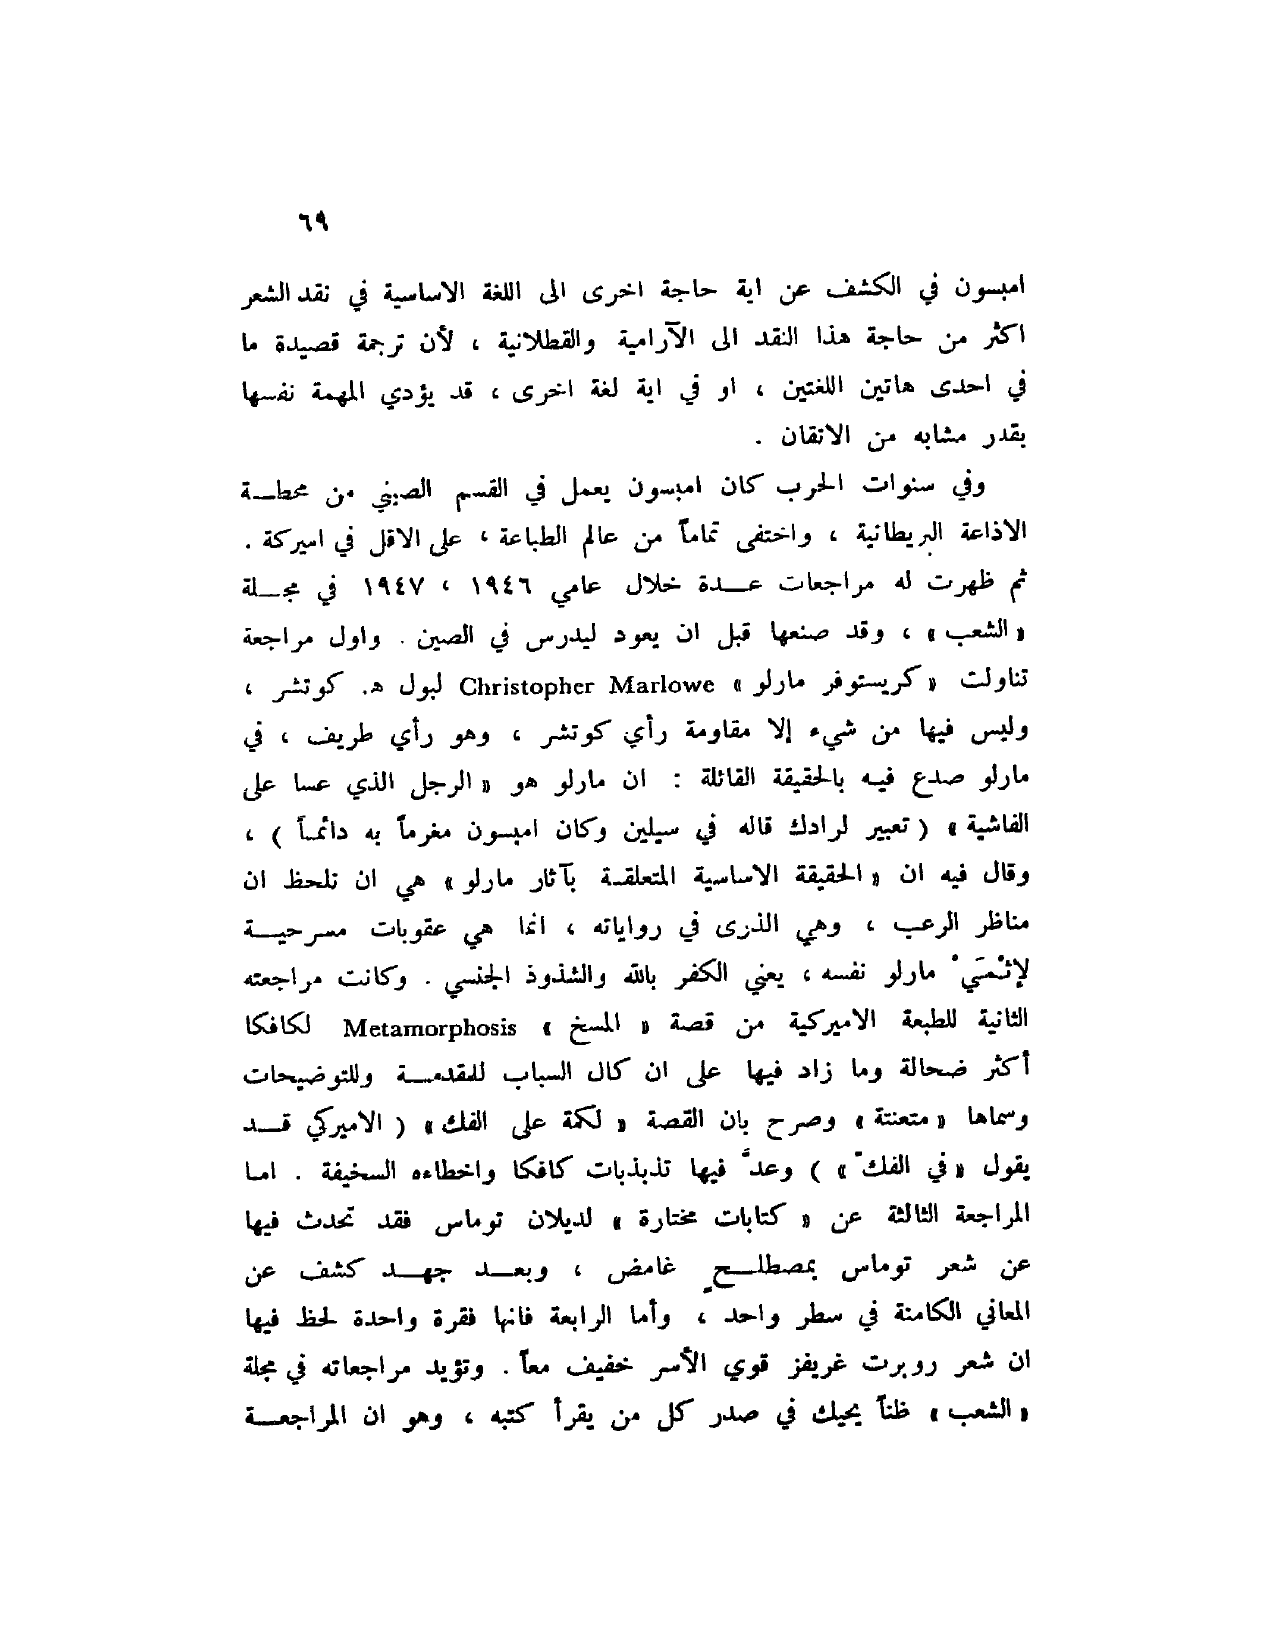 ٦٩
امبسون في الكشف عن اية حاجة اخرى الى اللغة الاساسية في نقد الشعر
اكثر من حاجة هذا النقد الى الآرامية والقطلانية ، لأن ترجمة قصيدة ما
في احدى هاتين اللغتين ، او في اية لغة اخرى ، قد يؤدي المهمة نفسها
بقدر مشابه من الاتقان .
وفي سنوات الحرب كان امبسون يعمل في القسم الصيني من محطـة
الاذاعة البريطانية ، واختفى تماماً من عالم الطباعة ، على الاقل في اميركة .
ثم ظهرت له مراجعات عـدة خلال عامي ١٩٤٦ ، ١٩٤٧ في مجـلة
« الشعب » ، وقد صنعها قبل ان يعود ليدرس في الصين . واول مراجعة
تناولت « كريستوفر مارلو » Christopher Marlowe لبول هـ. كوتشر ،
وليس فيها من شيء إلا مقاومة رأي كوتشر ، وهو رأي طريف ، في
مارلو صدع فيه بالحقيقة القائلة : ان مارلو هو « الرجل الذي عسا على
الفاشية » ( تعبير لرادك قاله في سيلين وكان امبسون مغرماً به دائماً ) ،
وقال فيه ان « الحقيقة الاساسية المتعلقـة بآثار مارلو » هي ان نلحظ ان
مناظر الرعب ، وهي الذرى في رواياته ، انما هي عقوبات مسرحيـة
لإثْمَيْ مارلو نفسه ، يعني الكفر بالله والشذوذ الجنسي . وكانت مراجعته
الثانية للطبعة الاميركية من قصة « المسخ » Metamorphosis لكافكا
أكثر ضحالة وما زاد فيها على ان كال السباب للمقدمـة وللتوضيحات
وسماها « متعنتة » وصرح بان القصة « لكمة على الفك » ( الاميركي قـد
يقول « في الفك » ) وعدَّ فيها تذبذبات كافكا واخطاءه السخيفة . اما
المراجعة الثالثة عن « كتابات مختارة » لديلان توماس فقد تحدث فيها
عن شعر توماس بمصطلـحٍ غامض ، وبعـد جهـد كشف عن
المعاني الكامنة في سطر واحد ، وأما الرابعة فانها فقرة واحدة لحظ فيها
ان شعر روبرت غريفز قوي الأسر خفيف معاً . وتؤيد مراجعاته في مجلة
« الشعب » ظناً يحيك في صدر كل من يقرأ كتبه ، وهو ان المراجعـة